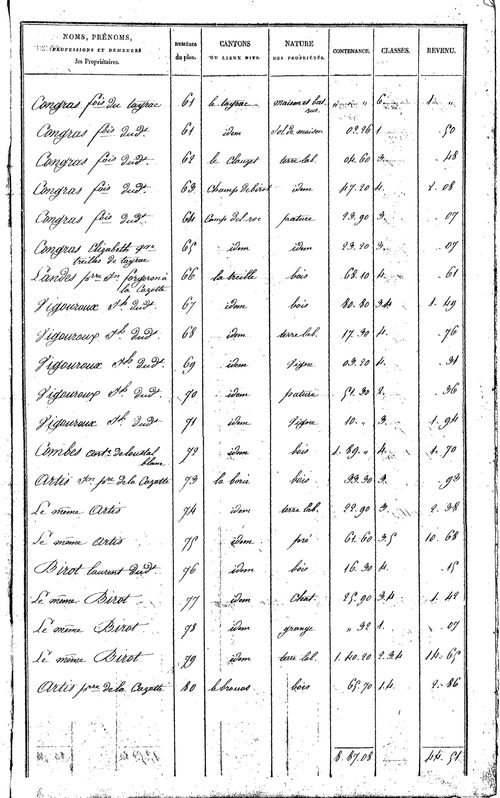 NOMS, PRÉNOMS, PROFESSIONS ET DEMEURES des Propriétaires. NUMÉROS du plan. CANTONS OU LIEUX DITS. NATURE DES PROPRIÉTÉS. CONTENANCE. CLASSES. REVENU.
Congras fois du tayrac 61 le tayrac maison et bat. rur. " " " 6 1. "
Congras fois dudt. 61 idem Sol de maison 02.26 1 50
Congras fois dudt. 62 le Clauzet terre lab. 04.60 3 48
Congras fois dudt. 63 Champ de birot idem 47.20 4 2.08
Congras fois dudt. 64 Camp del roc pature 23.90 3 07
Congras Elizabeth 65 idem idem 23.20 3 07
treilles de tayrac
Landes pre. forgeron à la Cazotte 66 la treille bois 68.10 4 61
Vigouroux Jh. dudt. 67 idem bois 80.80 3.4 1.49
Vigouroux Jh. dudt. 68 idem terre lab. 17.30 4 76
Vigouroux Jh. dudt. 69 idem Vigne 03.20 4 31
Vigouroux Jh. dudt. 70 idem pature 51.30 2 36
Vigouroux Jh. dudt. 71 idem Vigne 10. " 3 1.94
Combes de loustal blanc 72 idem bois 1.89. " 4 1.70
Artis pre de la Cazotte 73 la borie bois 33.30 3 93
Le même Artis 74 idem terre lab. 22.90 3 2.38
Le même Artis 75 idem pré 61.60 3.5 10.68
Birot laurent dudt. 76 idem bois 16.30 4 15
Le même Birot 77 idem Chat. 25.90 3.4 1.42
Le même Birot 78 idem grange " 32 1 07
Le même Birot 79 idem terre lab. 1.40.20 2.3.4 14.65
Artis pre de la Cazotte 80 le brouas bois 65.70 1.4 2.86
8.87.08 44.51